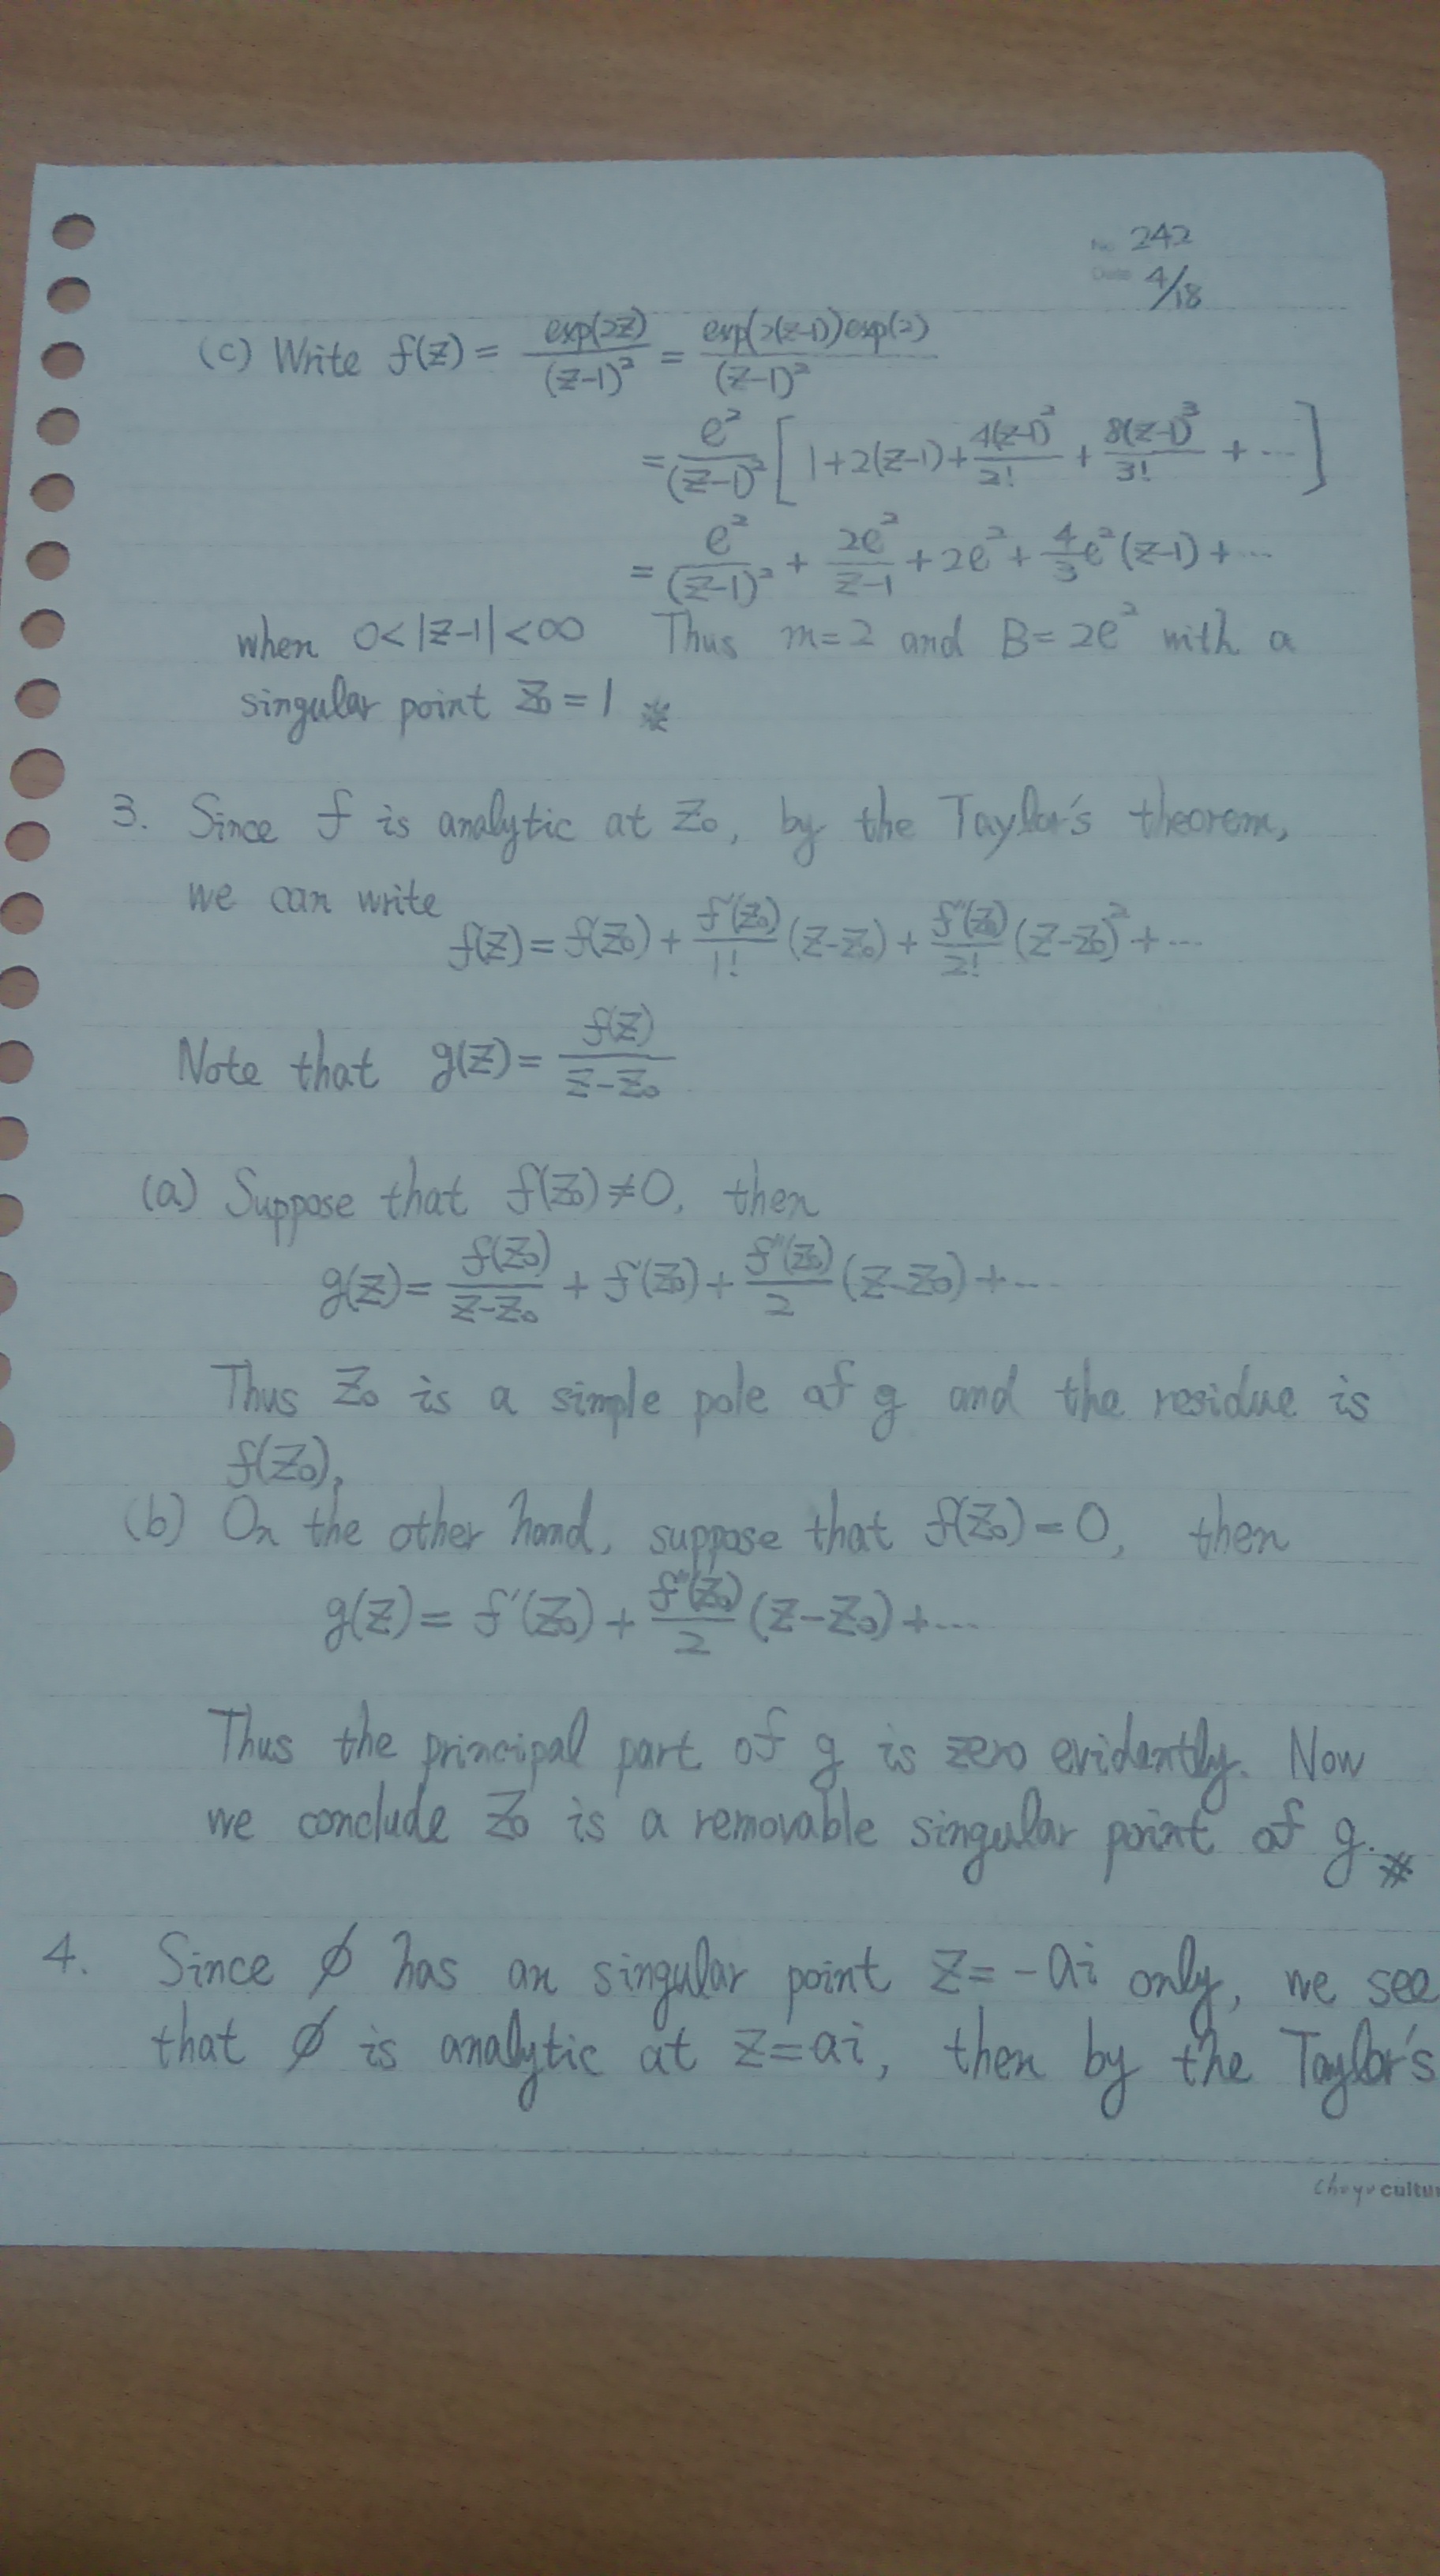 No. 242
Date 4/18
(c) Write f(z) = exp(2z)/(z-1)² = exp(2(z-1))exp(2)/(z-1)²
= e²/(z-1)² [1+2(z-1)+4(z-1)²/2! + 8(z-1)³/3! + ...]
= e²/(z-1)² + 2e²/z-1 + 2e² + 4/3 e²(z-1) + ...
when 0<|z-1|<∞ Thus m=2 and B=2e² with a
singular point z₀=1 ※
3. Since f is analytic at z₀, by the Taylor's theorem,
we can write
f(z) = f(z₀) + f'(z₀)/1! (z-z₀) + f''(z₀)/2! (z-z₀)² + ...
Note that g(z) = f(z)/z-z₀
(a) Suppose that f(z₀)≠0, then
g(z) = f(z₀)/z-z₀ + f'(z₀) + f''(z₀)/2 (z-z₀) + ...
Thus z₀ is a simple pole of g and the residue is
f(z₀),
(b) On the other hand, suppose that f(z₀)=0, then
g(z) = f'(z₀) + f''(z₀)/2 (z-z₀) + ...
Thus the principal part of g is zero evidently. Now
we conclude z₀ is a removable singular point of g. ※
4. Since ϕ has an singular point z=-ai only, we see
that ϕ is analytic at z=ai, then by the Taylor's